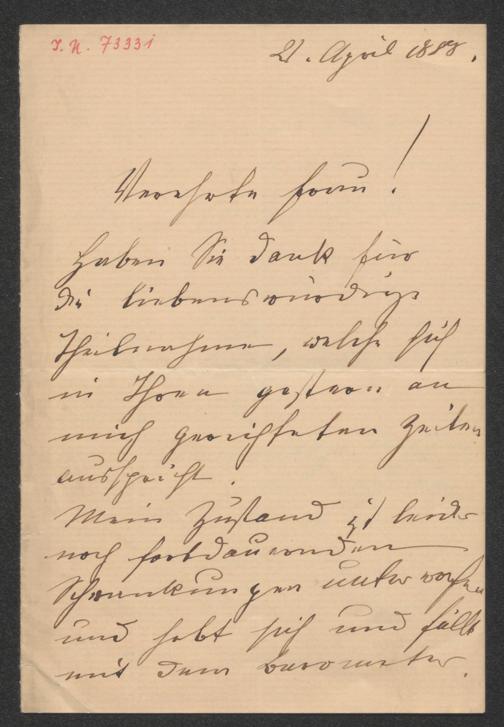 J. N. 73331
21. April 1888.
Verehrte Frau!
Haben Sie Dank für
die liebenswürdige
Theilnahme, welche sich
in Ihren gestern an
mich gerichteten Zeilen
ausspricht.
Mein Zustand ist leider
noch fortdauernden
Schwankungen unterworfen
und hebt sich und fällt
mit dem Barometer.